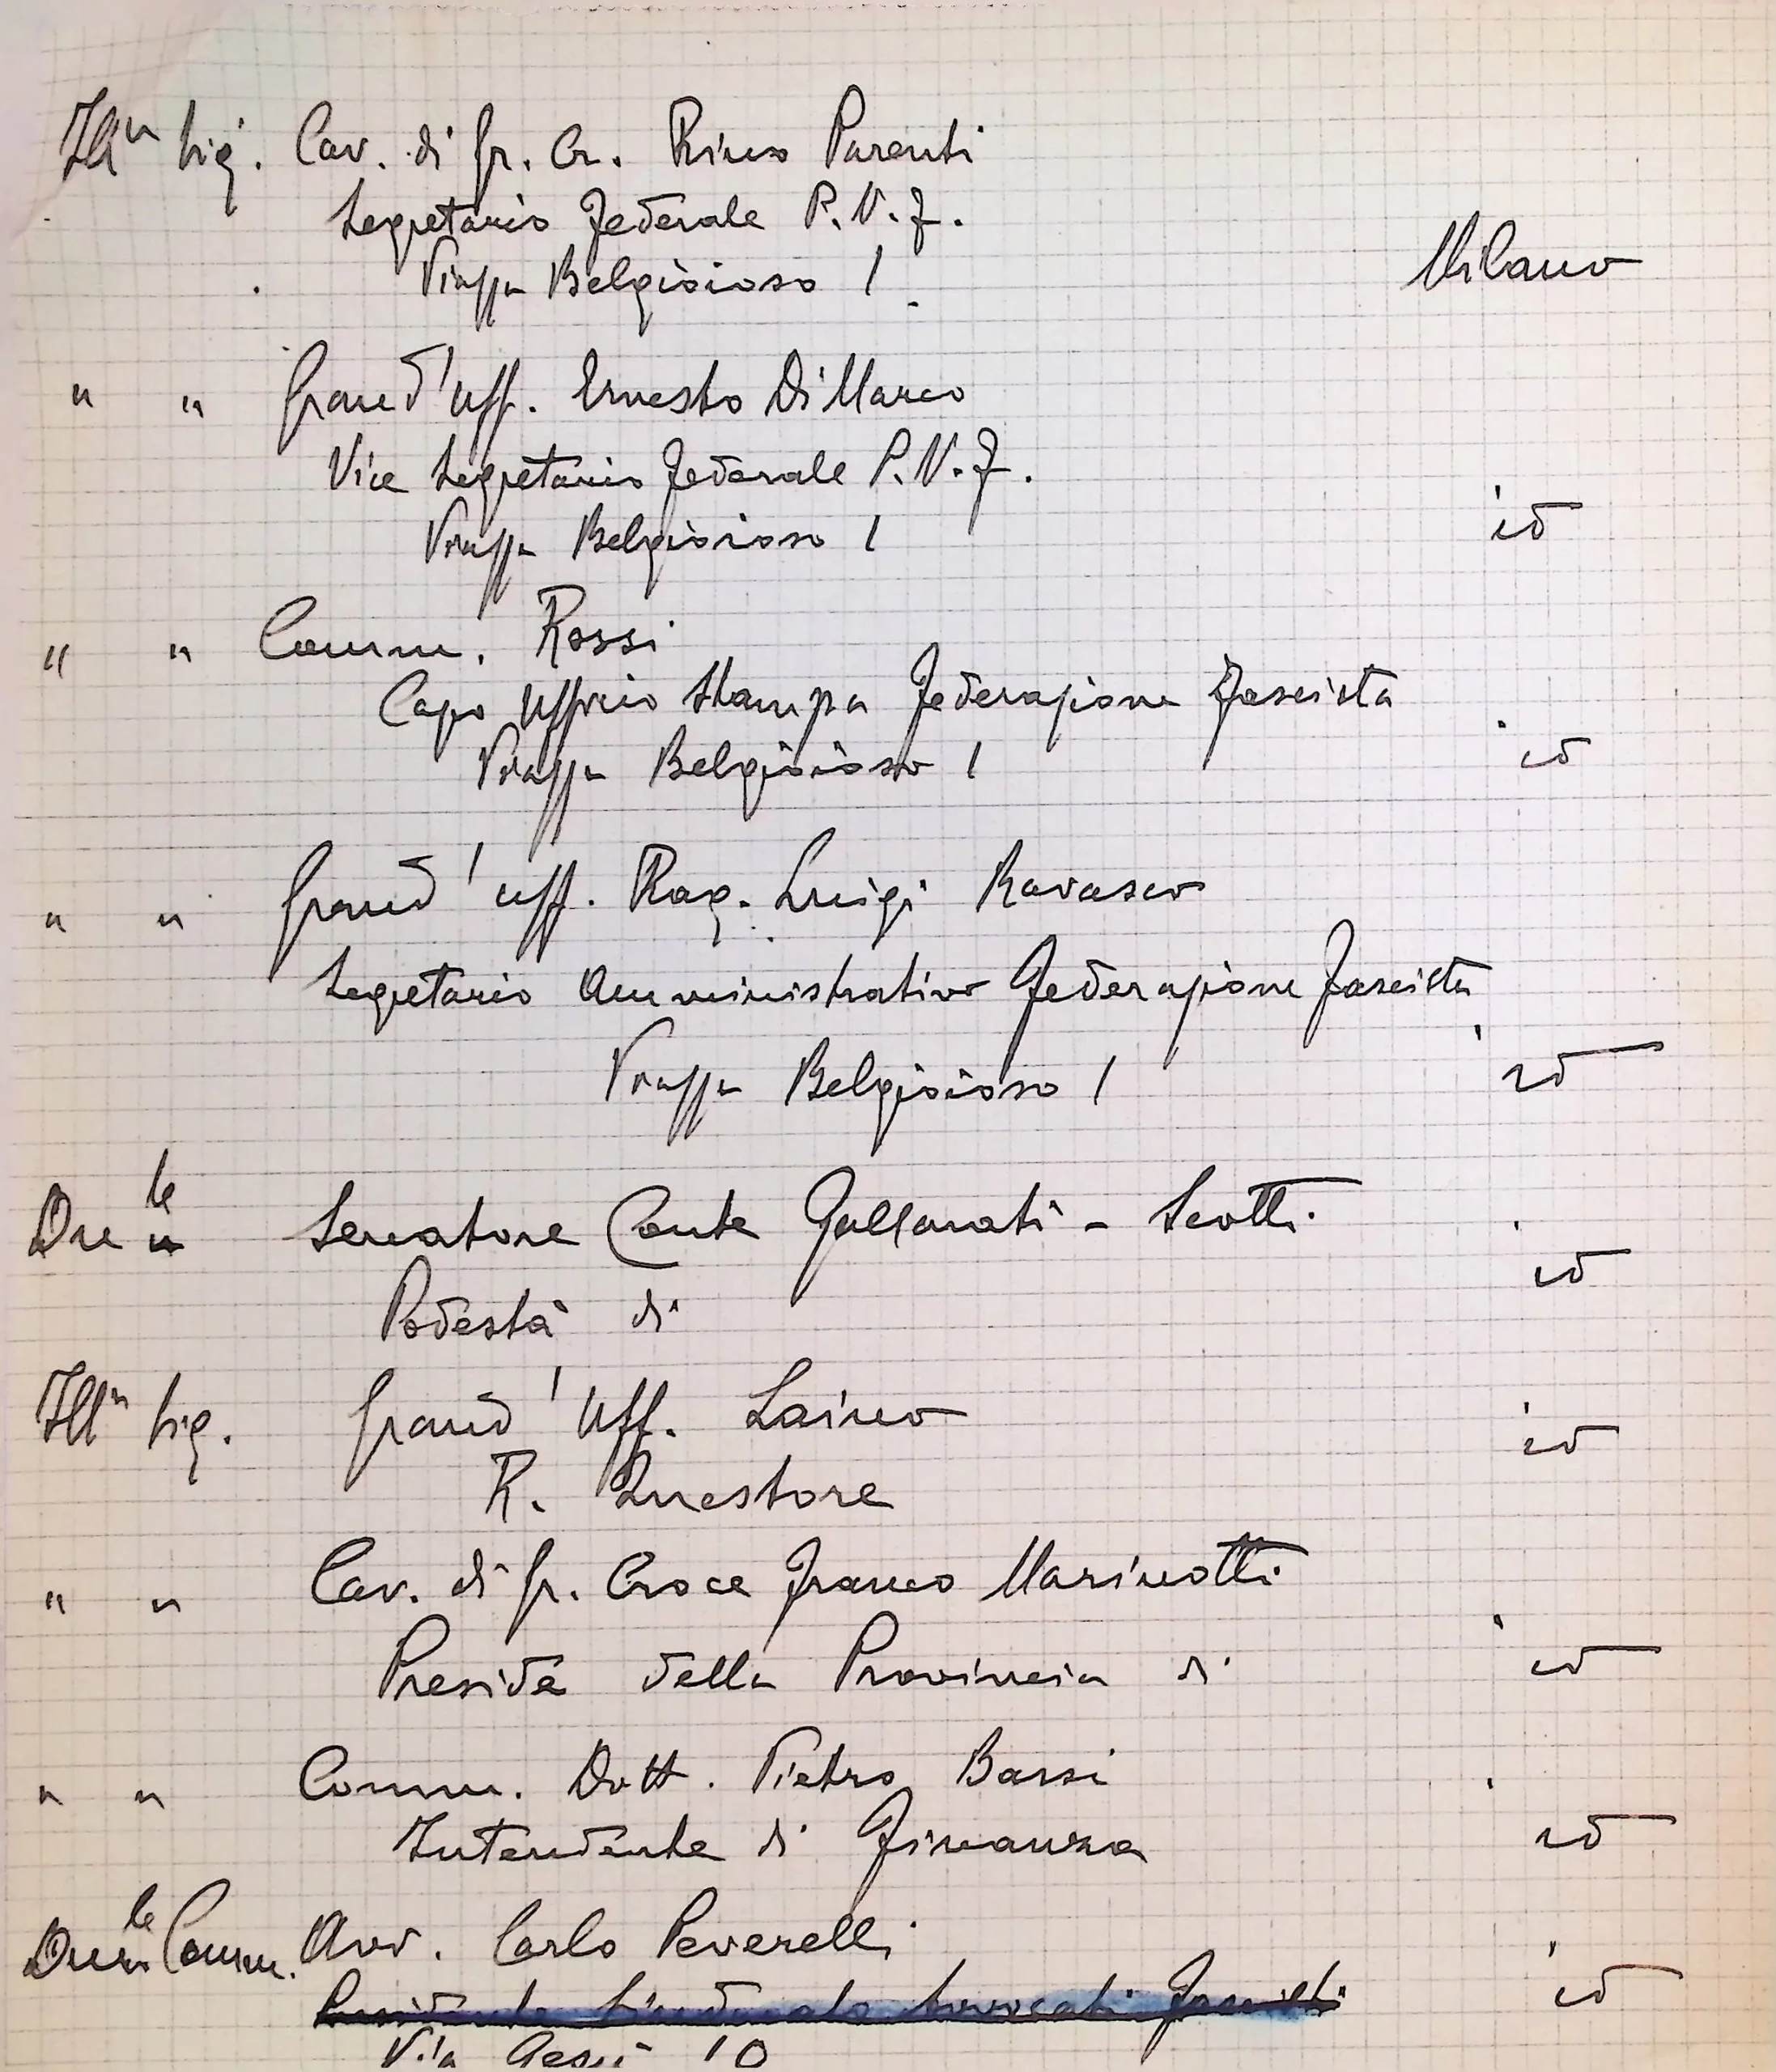 Ill^mo Sig. Cav. di Gr. Cr. Rino Parenti
Segretario Federale P.N.F.
Piazza Belgioioso 1 Milano
" " Grand'Uff. Ernesto Di Marco
Vice Segretario Federale P.N.F.
Piazza Belgioioso 1 id
" " Comm. Rossi
Capo Ufficio Stampa Federazione Fascista
Piazza Belgioioso 1 id
" " Grand'Uff. Rag. Luigi Ravasco
Segretario Amministrativo Federazione Fascista
Piazza Belgioioso 1 id
On le Senatore Conte Gallarati - Scotti id
Podestà di
Ill^mo Sig. Grand'Uff. Laino id
R. Questore
" " Cav. di Gr. Croce Franco Marinotti
Preside della Provincia di id
" " Comm. Dott. Pietro Bassi
Intendente di Finanza id
On le Comm. Avv. Carlo Peverelli
Presidente Sindacato Avvocati Fascisti id
Via Gesù 10